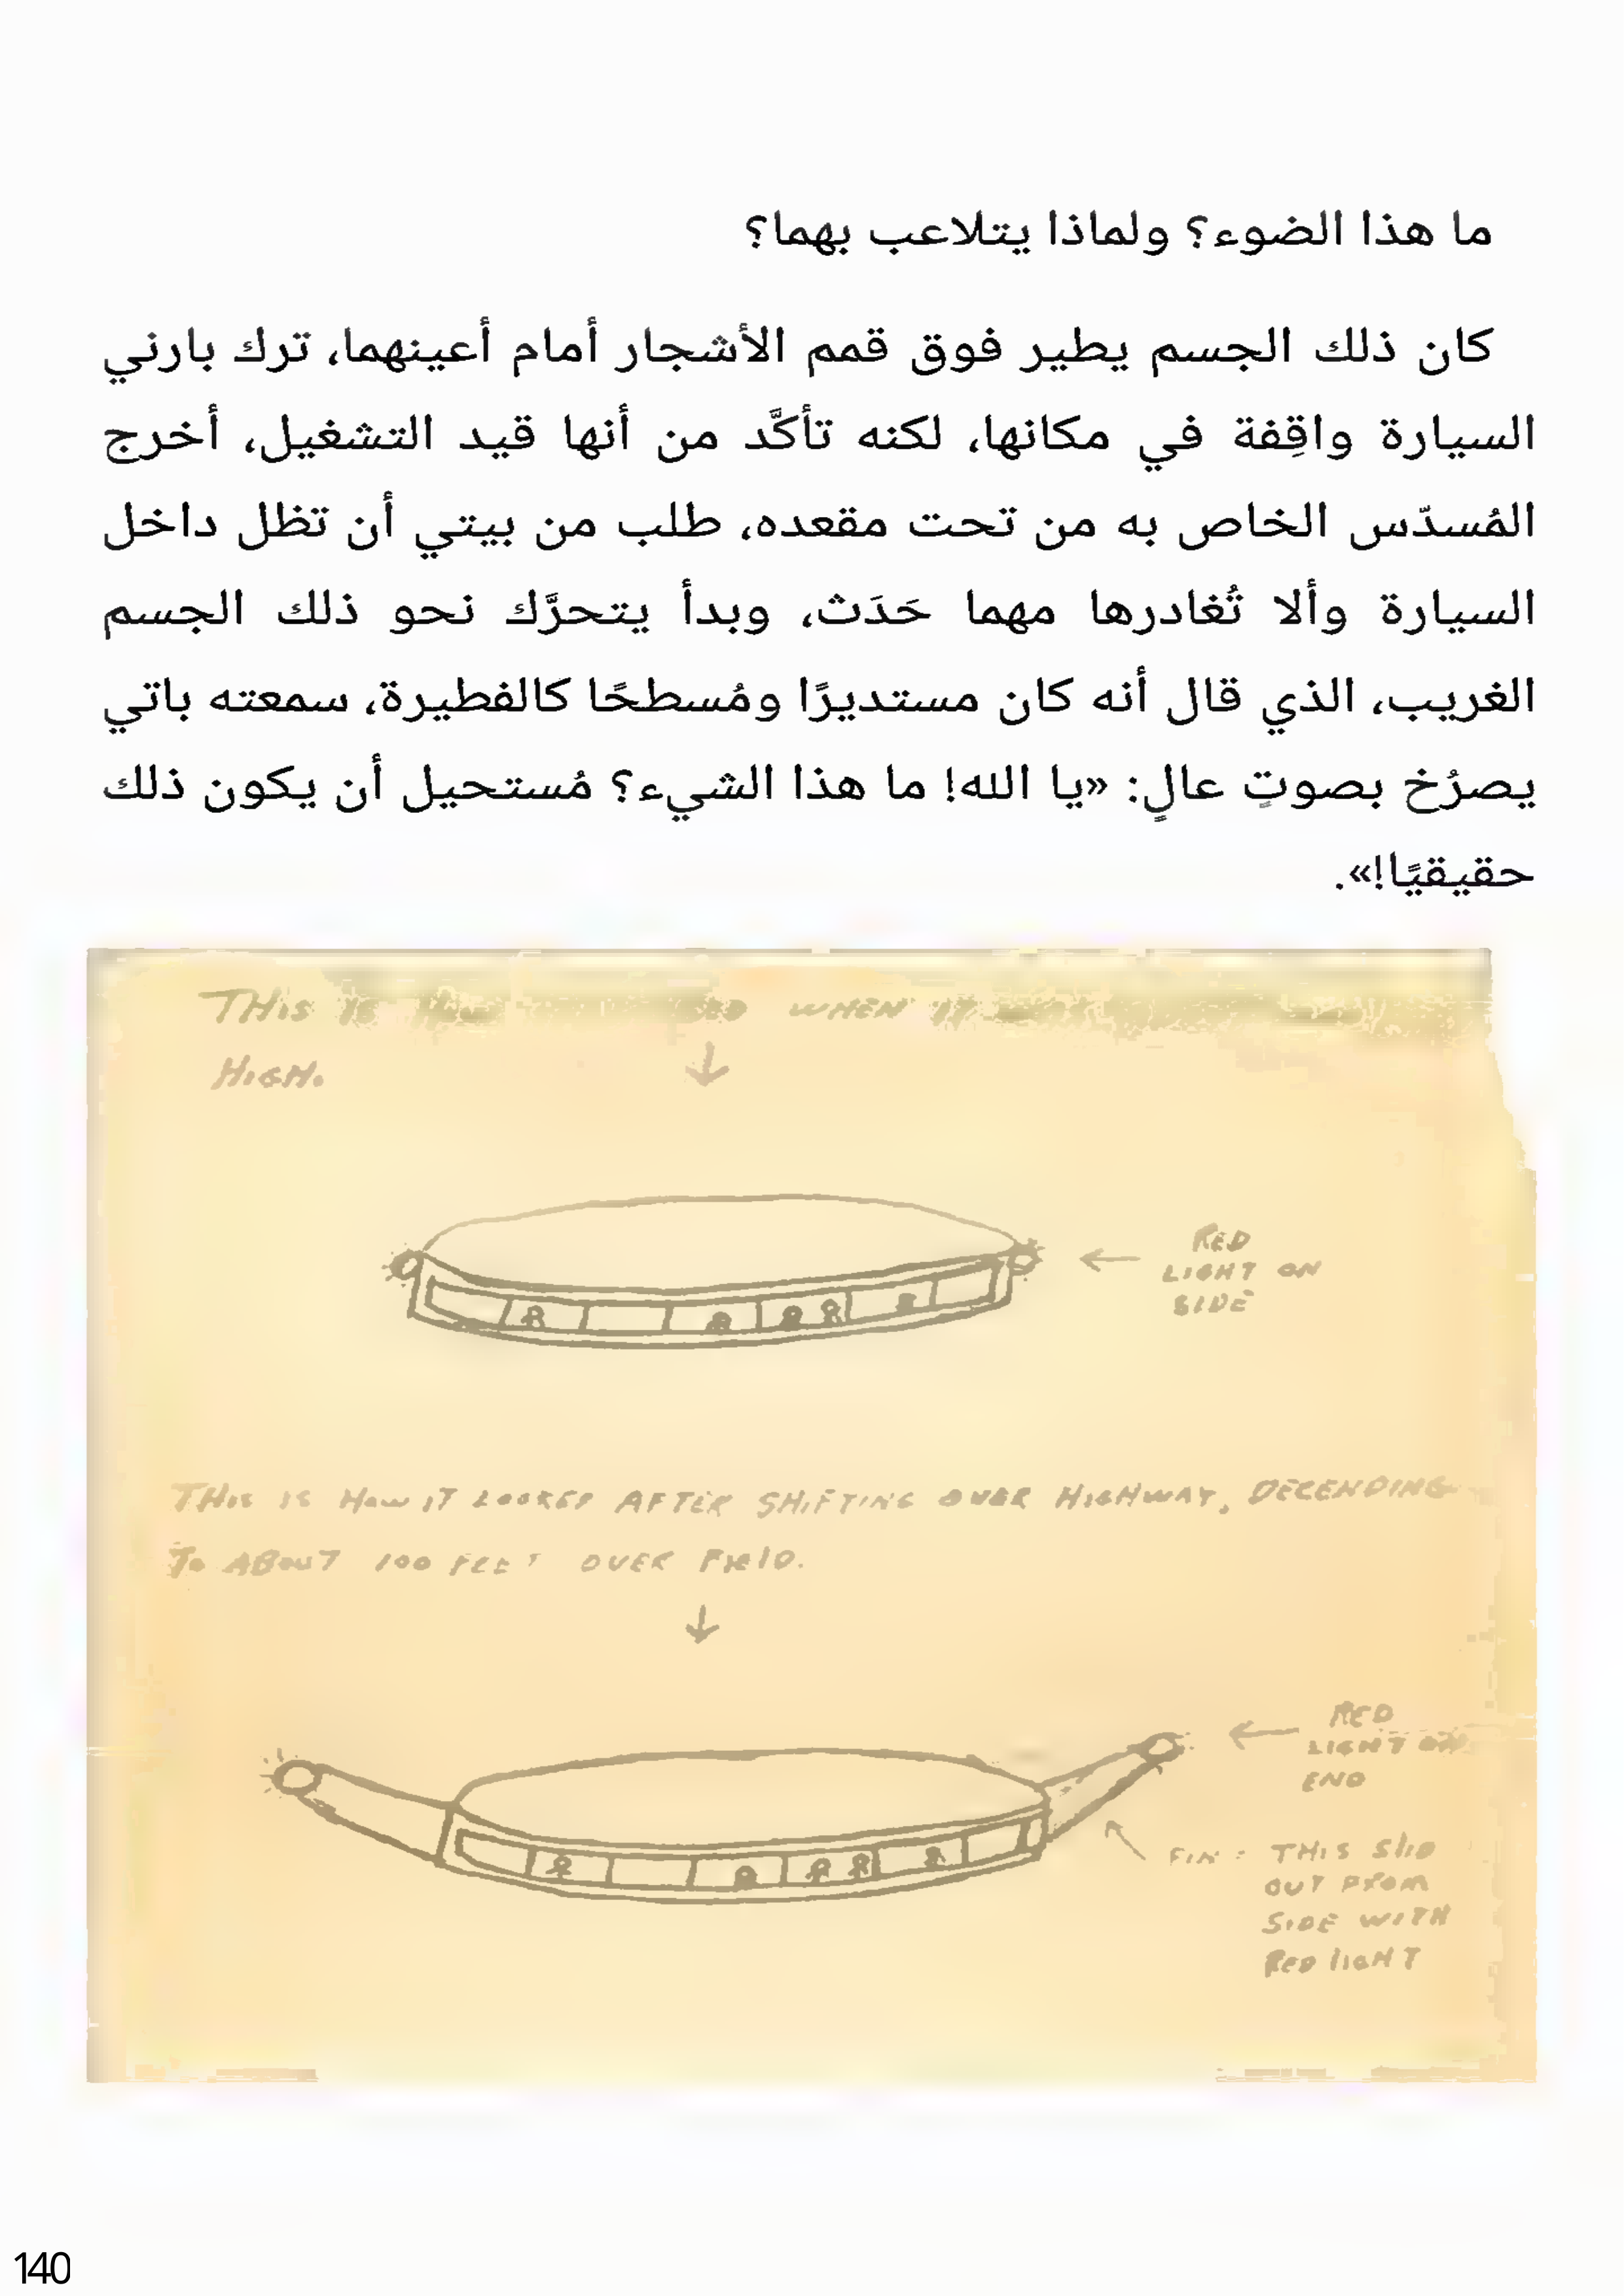 ما هذا الضوء؟ ولماذا يتلاعب بهما؟
كان ذلك الجسم يطير فوق قمم الأشجار أمام أعينهما، ترك بارني
السيارة واقِفة في مكانها، لكنه تأكَّد من أنها قيد التشغيل، أخرج
المُسدّس الخاص به من تحت مقعده، طلب من بيتي أن تظل داخل
السيارة وألا تُغادرها مهما حَدَث، وبدأ يتحرَّك نحو ذلك الجسم
الغريب، الذي قال أنه كان مستديرًا ومُسطحًا كالفطيرة، سمعته باتي
يصرُخ بصوتٍ عالٍ: «يا الله! ما هذا الشيء؟ مُستحيل أن يكون ذلك
حقيقيًا!».
THIS IS WHEN IT
HIGH.
RED
LIGHT ON
SIDE
THIS IS HOW IT LOOKED AFTER SHIFTING OVER HIGHWAY, DECENDING
TO ABOUT 100 FEET OVER FIELD.
RED
LIGHT ON
END
FIN: THIS SLID
OUT FROM
SIDE WITH
RED LIGHT
140